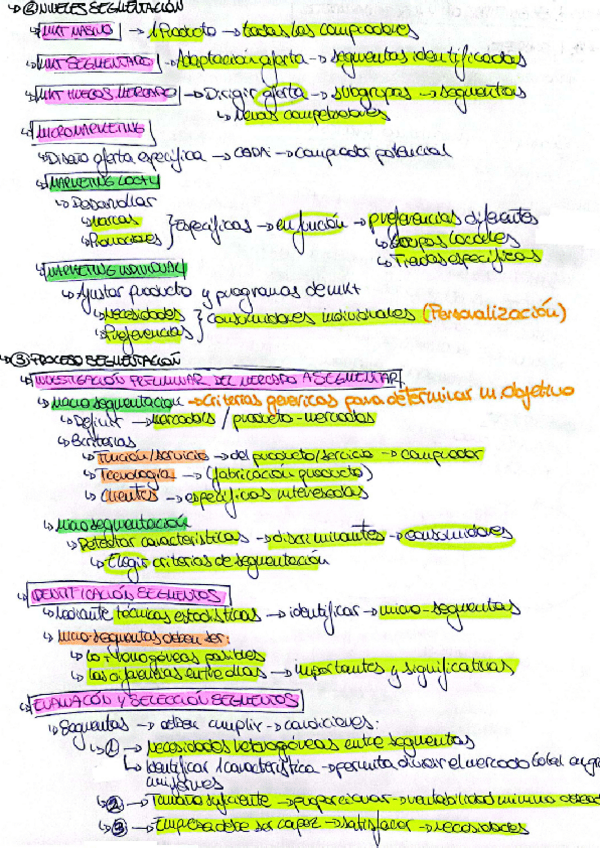 ↳ ② NIVELES SEGMENTACIÓN
↳ MKT MASIVO → 1 Producto → todos los compradores
↳ MKT SEGMENTADO → Adaptación oferta → segmentos identificados
↳ MKT HUECOS MERCADO → Dirigir oferta → subgrupos → segmentos
↳ Menos competidores
↳ MICROMARKETING
↳ Diseño oferta específica → CADA → comprador potencial
↳ MARKETING LOCAL
↳ Desarrollar
↳ Marcas
↳ Promociones } Específicas → en función → preferencias diferentes
↳ Grupos locales
↳ Tiendas específicas
↳ MARKETING INDIVIDUAL
↳ Ajustar producto y programas de mkt
↳ Necesidades
↳ Preferencias } consumidores individuales (Personalización)
↳ ③ PROCESO SEGMENTACIÓN
↳ INVESTIGACIÓN PRELIMINAR DEL MERCADO A SEGMENTAR
↳ Macrosegmentación → Criterios genéricos para determinar m. objetivo
↳ Definir → mercados / producto-mercados
↳ 3 criterios
↳ Función/servicio → del producto/servicio → comprador
↳ Tecnología → (fabricación producto)
↳ Clientes → específicos interesados
↳ Microsegmentación
↳ Detectar características → discriminantes → consumidores
↳ Elegir criterios de segmentación
↳ IDENTIFICACIÓN SEGMENTOS
↳ Mediante técnicas estadísticas → identificar → micro-segmentos
↳ Micro-segmentos deben ser:
↳ Lo + homogéneos posibles
↳ Las diferencias entre ellos → importantes y significativas
↳ EVALUACIÓN Y SELECCIÓN SEGMENTOS
↳ Segmentos → deben cumplir → condiciones:
↳ ① → Necesidades heterogéneas entre segmentos
↳ Identificar 1 característica → permita dividir el mercado total en
uniformes
↳ ② → Tamaño suficiente → proporcionar → rentabilidad mínima
↳ ③ → Empresa debe ser capaz → satisfacer → necesidades